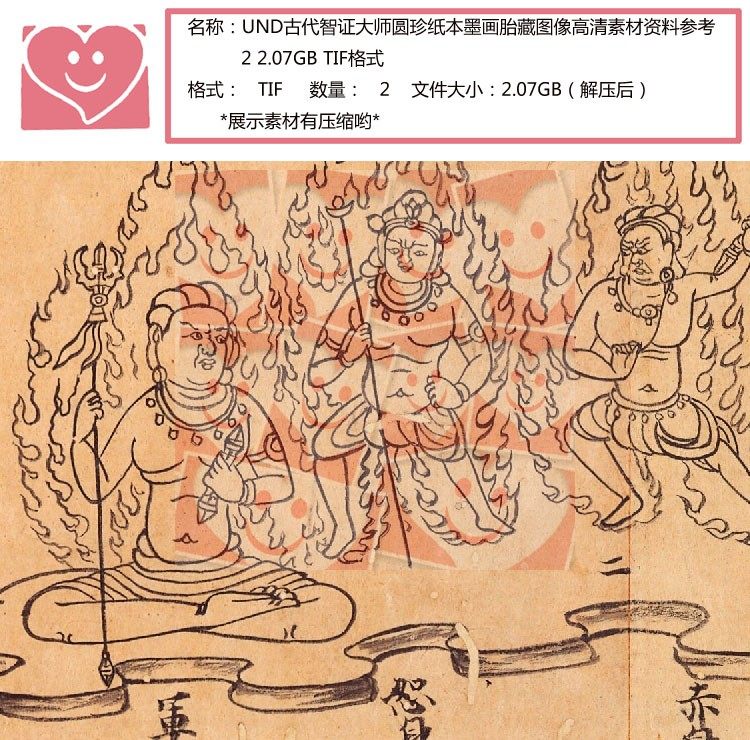 名称：UND古代智证大师圆珍纸本墨画胎藏图像高清素材资料参考
2 2.07GB TIF格式
格式： TIF 数量： 2 文件大小：2.07GB（解压后）
*展示素材有压缩哟*
二